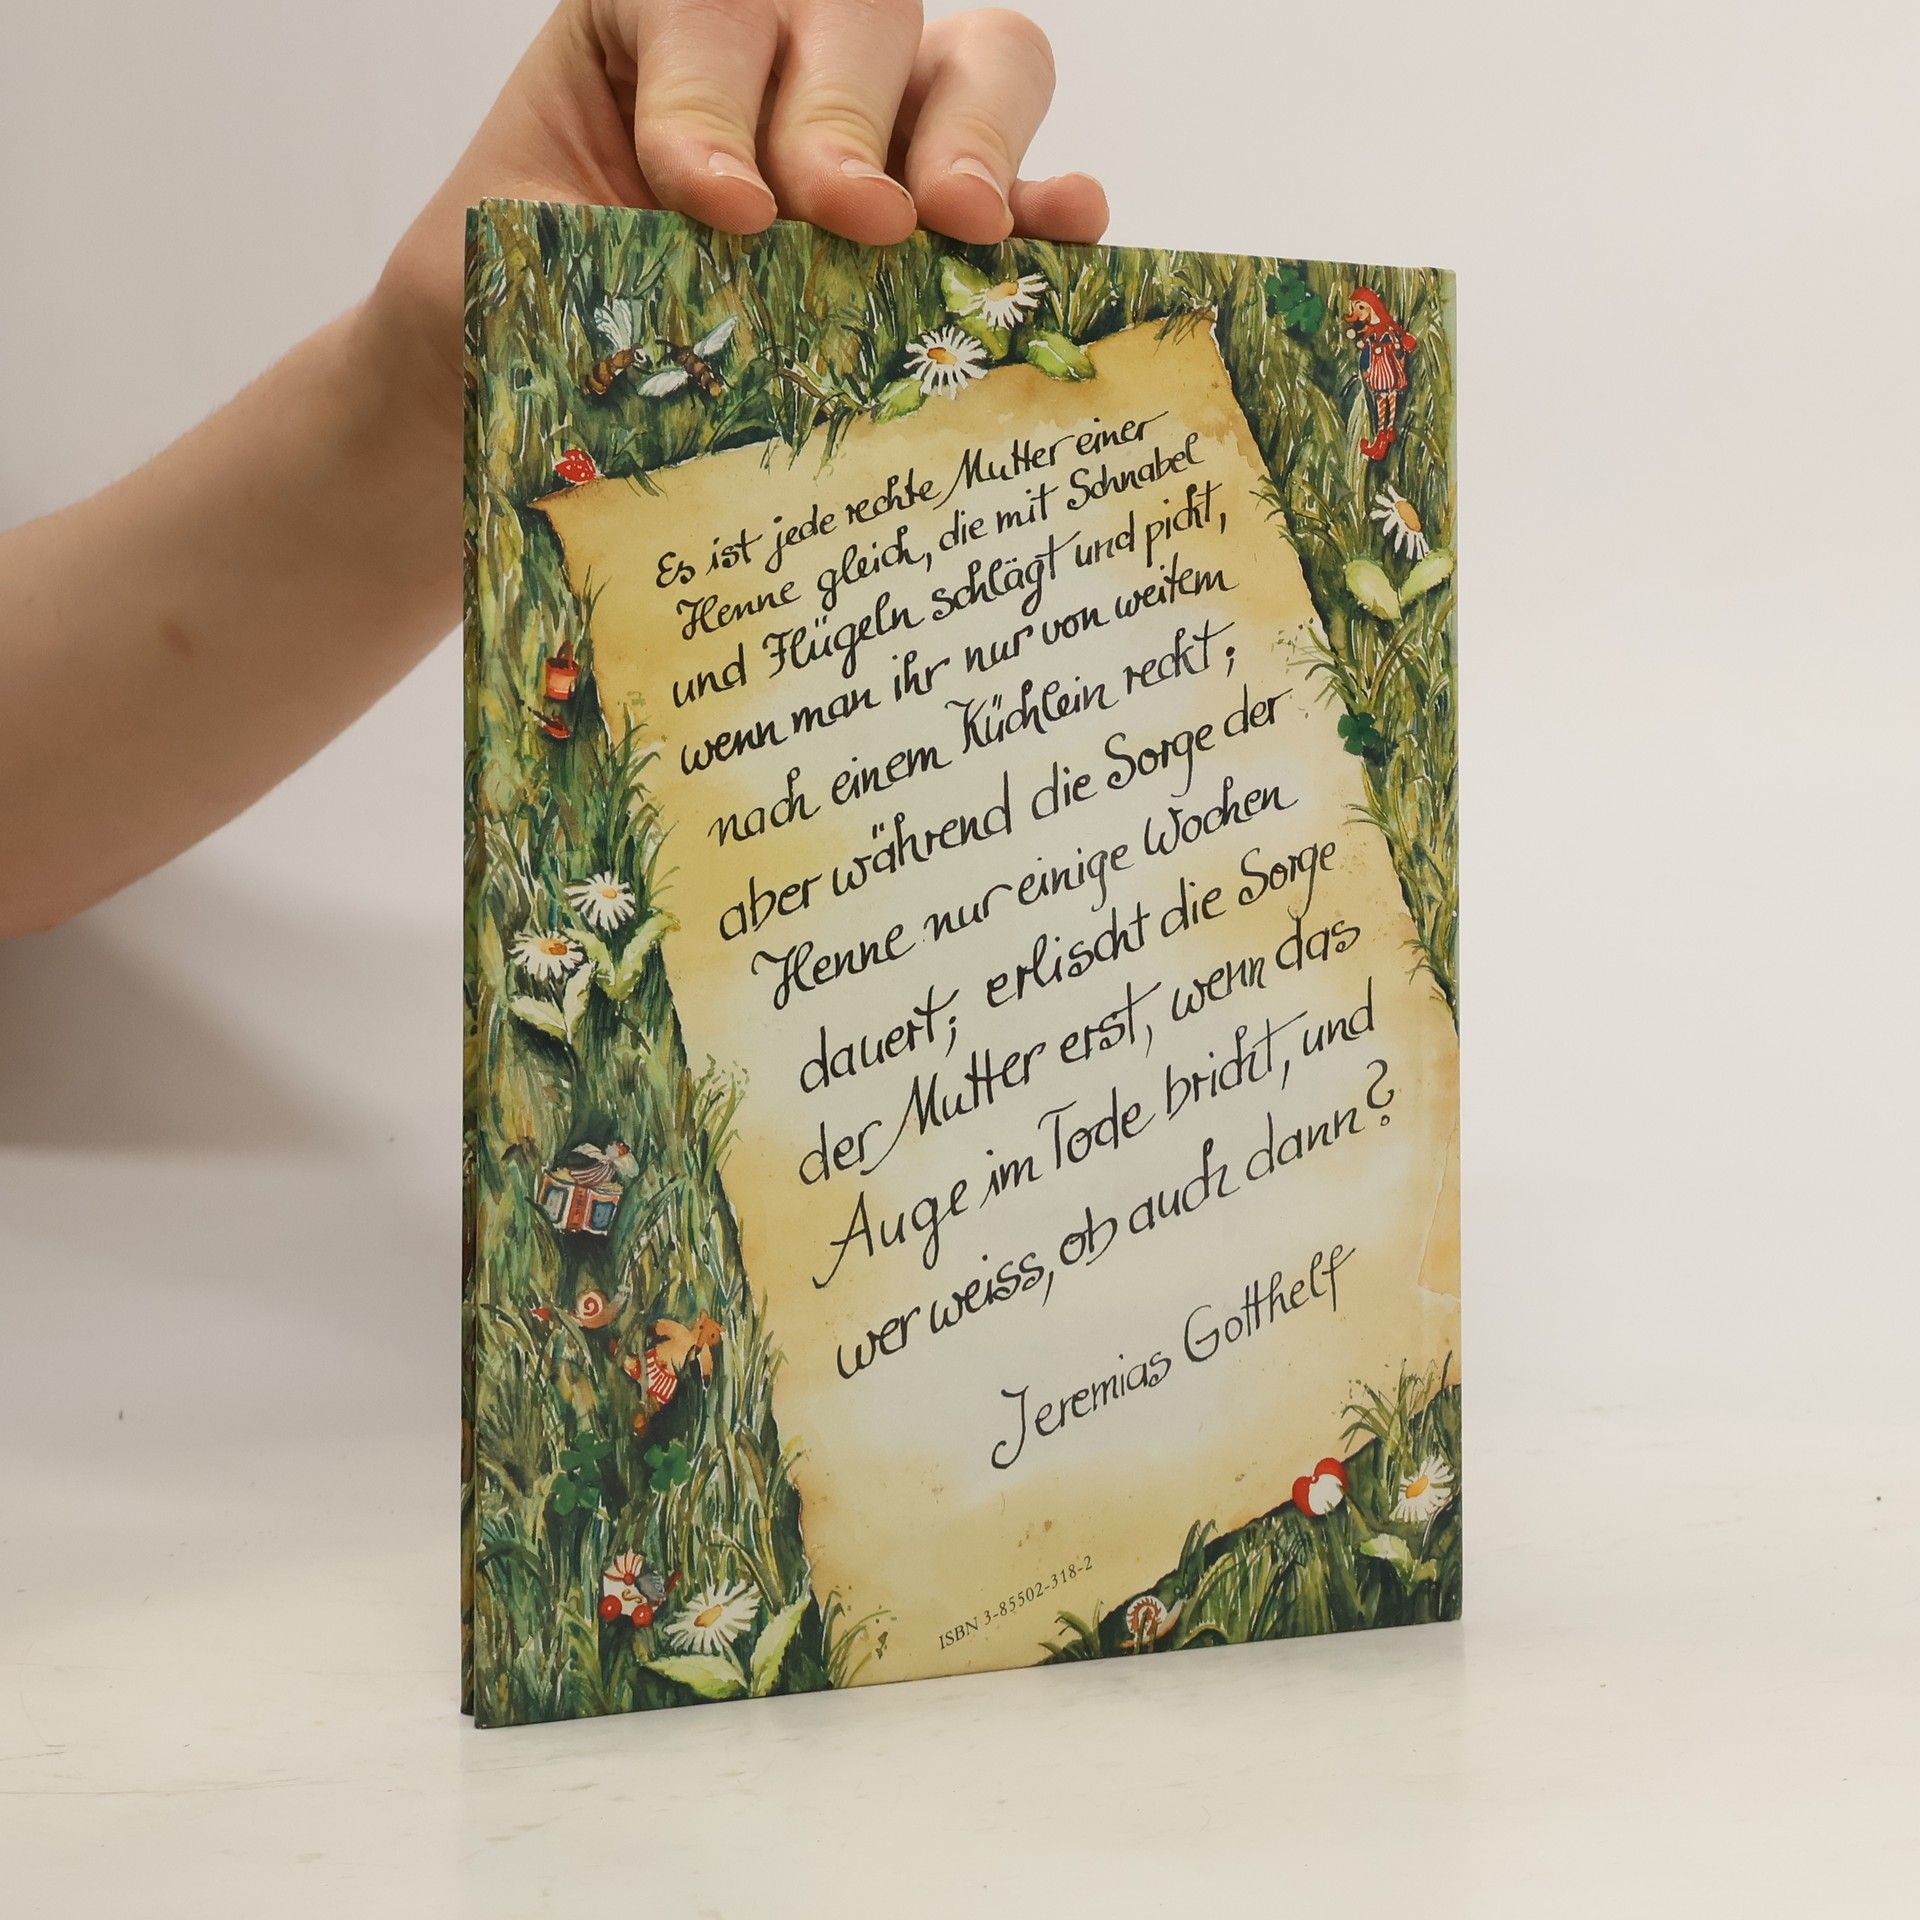 Es ist jede rechte Mutter einer
Henne gleich, die mit Schnabel
und Flügeln schlägt und pickt,
wenn man ihr nur von weitem
nach einem Küchlein reckt;
aber während die Sorge der
Henne nur einige Wochen
dauert; erlischt die Sorge
der Mutter erst, wenn das
Auge im Tode bricht, und
wer weiss, ob auch dann?
Jeremias Gotthelf
ISBN 3-85502-318-2